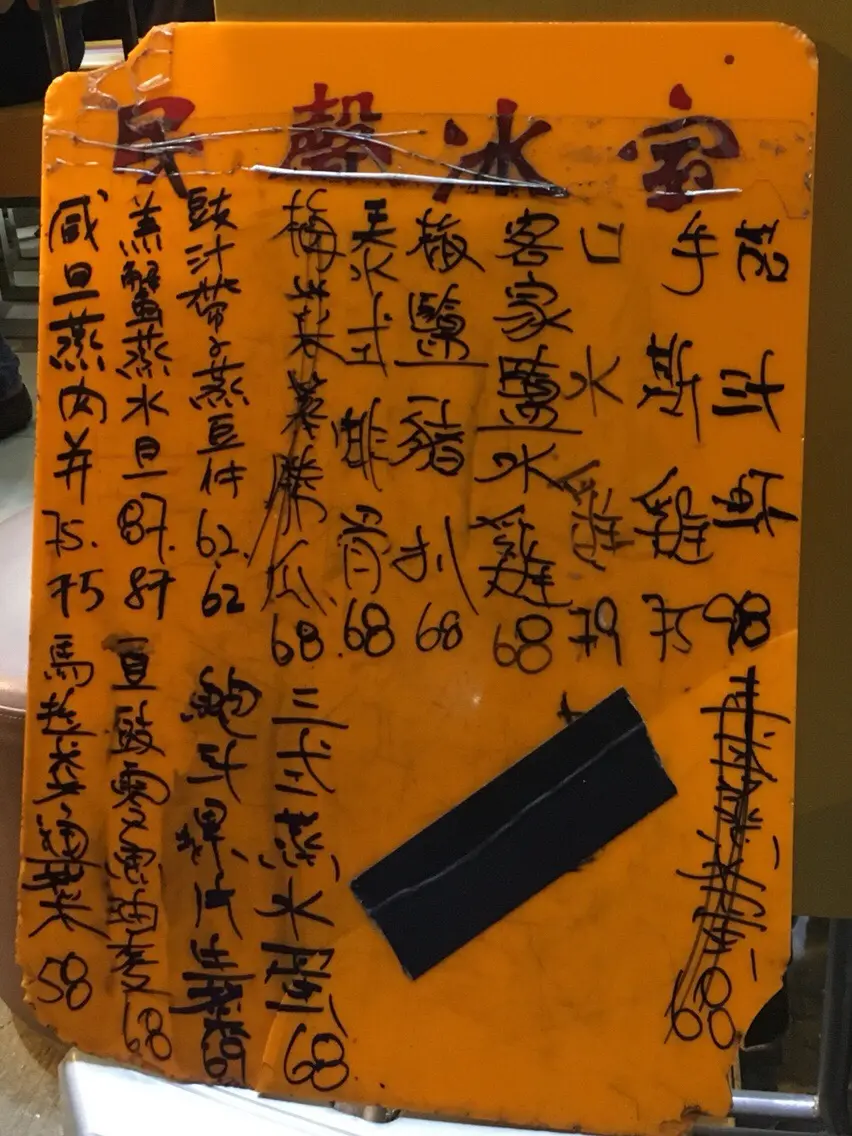 民聲冰室
茄汁 98
手撕雞 75
口水雞 79
客家鹽水雞 68
椒鹽豬扒 68
式排骨 68
梅菜蒸勝瓜 68
豉汁帶子蒸豆付 62. 62
羔蟹蒸水旦 87. 87
咸旦蒸肉并 75. 75
68
三式蒸水蛋 68
鮑汁片生菜 69
豆豉油麥 68
馬拉盞通菜 58